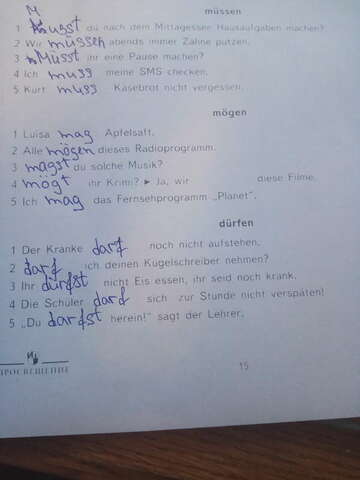 müssen
M
1 usst du nach dem Mittagessen Hausaufgaben machen?
2 Wir müssen abends immer Zähne putzen.
3 Müsst ihr eine Pause machen?
4 Ich muss meine SMS checken.
5 Kurt muss Käsebrot nicht vergessen.
mögen
1 Luisa mag Apfelsaft.
2 Alle mögen dieses Radioprogramm.
3 magst du solche Musik?
4 mögt ihr Krimi? ► Ja, wir diese Filme.
5 Ich mag das Fernsehprogramm „Planet".
dürfen
1 Der Kranke darf noch nicht aufstehen.
2 darf ich deinen Kugelschreiber nehmen?
3 Ihr dürfst nicht Eis essen, ihr seid noch krank.
4 Die Schüler darf sich zur Stunde nicht verspäten!
5 „Du darfst herein!" sagt der Lehrer.
15
ПРОСВЕЩЕНИЕ